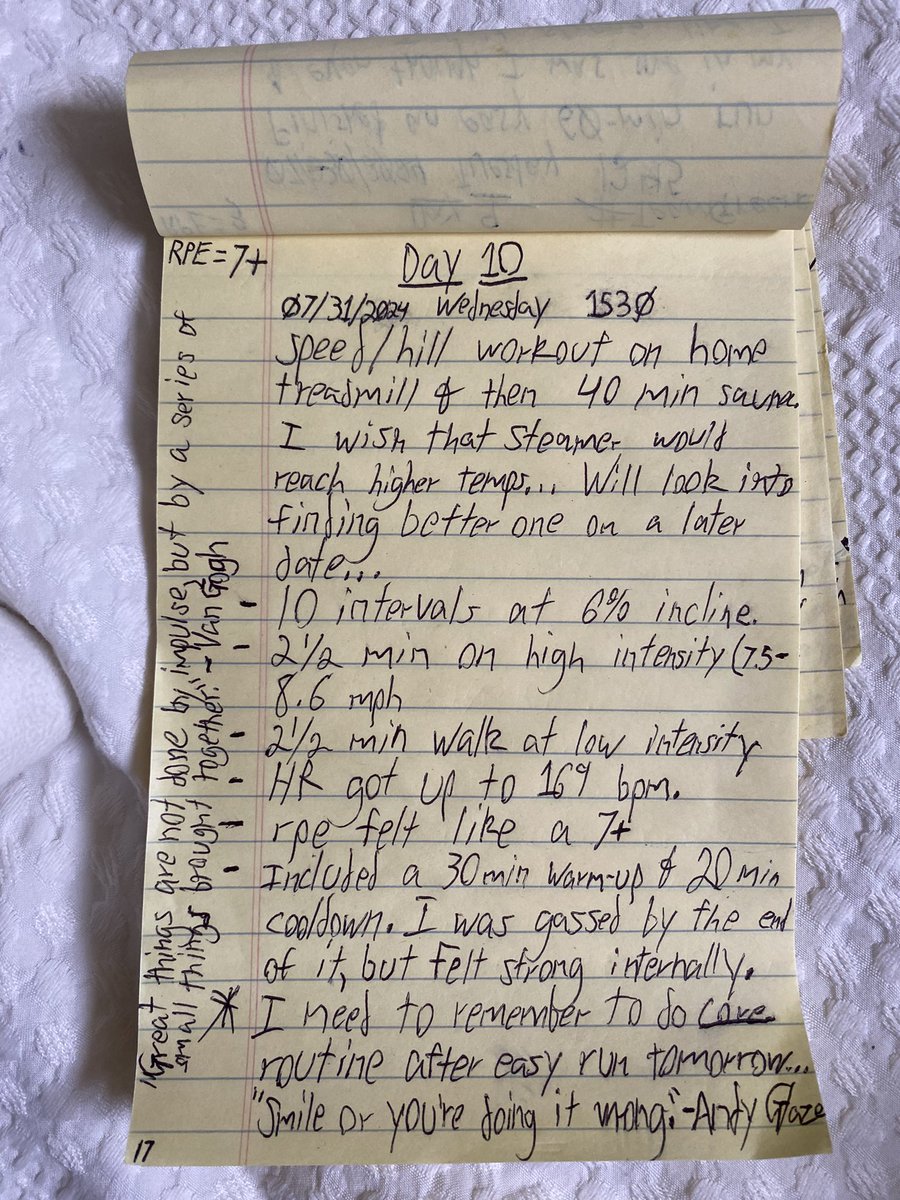 RPE = 7+
Day 10
Ø7/31/2024 Wednesday 153Ø
speed/hill workout on home
treadmill & then 40 min sauna.
I wish that steamer would
reach higher temps... Will look into
finding better one on a later
date...
- 10 intervals at 6% incline.
- 2 1/2 min on high intensity (7.5-
8.6 mph
- 2 1/2 min walk at low intensity
- HR got up to 169 bpm.
- rpe felt like a 7+
- Included a 30 min warm-up & 20 min
cooldown. I was gassed by the end
of it, but felt strong internally.
* I need to remember to do core
routine after easy run tomorrow...
"Smile or you're doing it wrong." -Andy Glaze
"Great things are not done by impulse, but by a series of
small things brought together." ~ Van Gogh
17
Finished an easy 60-min run
Tuesday